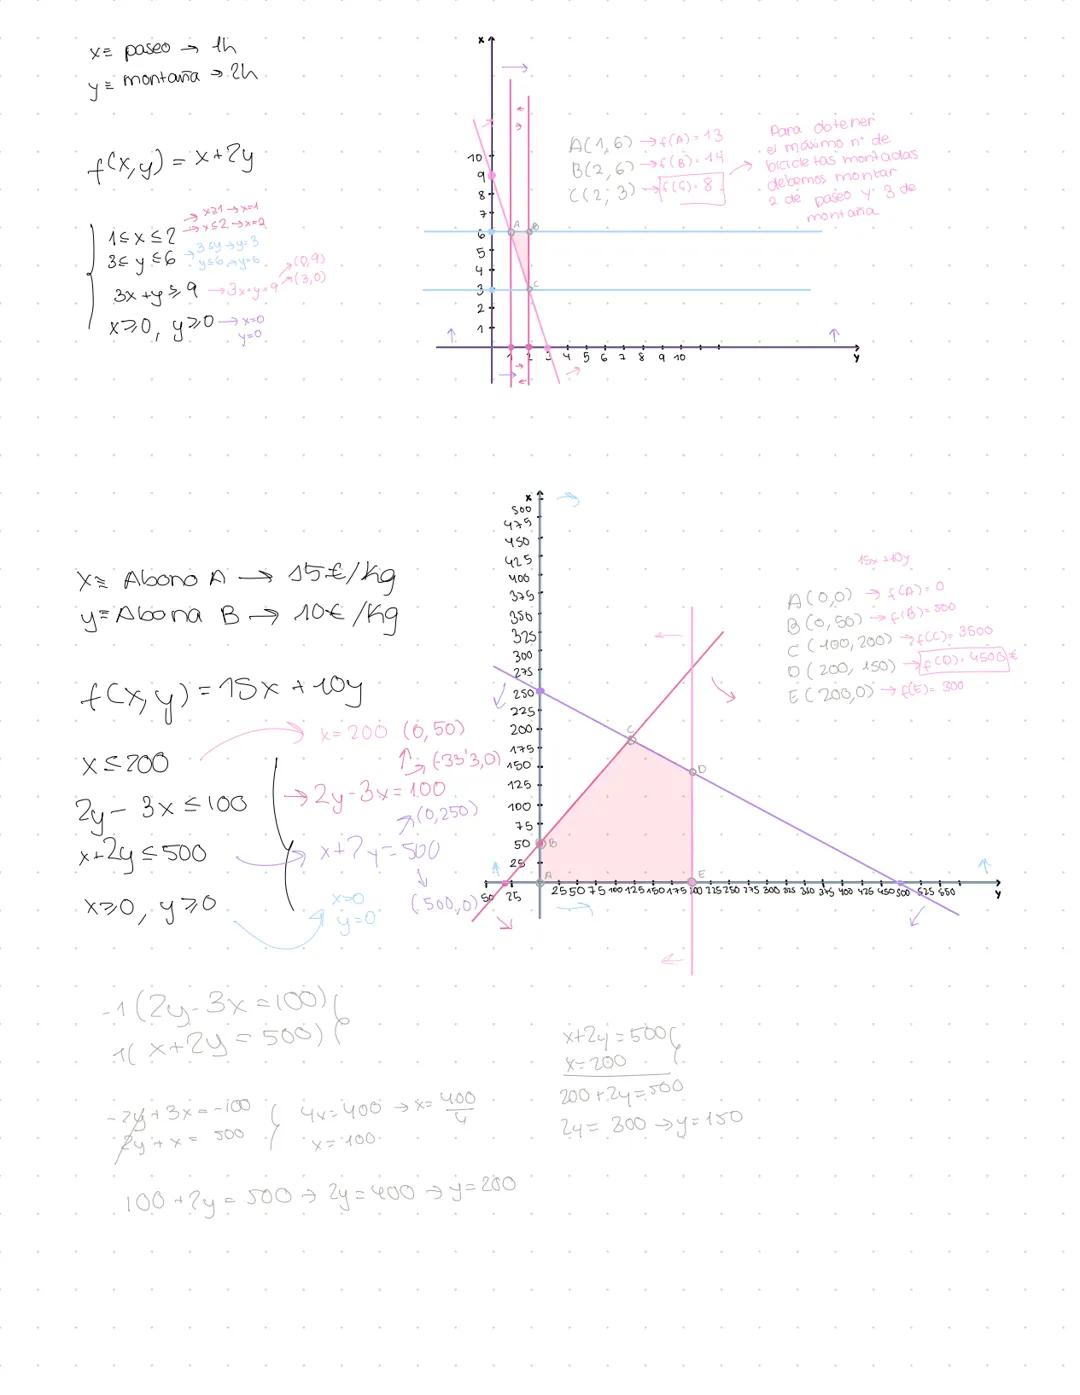 x≡ paseo → 1h
y≡ montaña → 2h
f(x,y) = x+2y
1≤x≤2 → x≥1 → x=1
→ x≤2 → x=2
3≤y≤6 → 3≤y → y=3
y≤6 → y=6
3x+y≥9 → 3x+y=9 → (0,9)
→ (3,0)
x≥0, y≥0 → x=0
y=0
x
10
9
8
7
6
5
4
3
2
1
A
B
C
1 2 3 4 5 6 7 8 9 10
y
A(1,6) → f(A) = 13
B(2,6) → f(B) = 14
C(2;3) → f(C) = 8
Para obtener
el máximo nº de
bicicletas montadas
debemos montar
2 de paseo y 3 de
montaña
x≡ Abono A → 15€/kg
y=Abona B → 10€/kg
f(x,y) = 15x + 10y
x≤200
x=200 (0,50)
(-33'3,0)
2y - 3x ≤ 100 → 2y-3x=100
(0,250)
x+2y≤500 → x+2y=500
(500,0)
x≥0, y≥0
x=0
y=0
x
500
475
450
425
400
375
350
325
300
275
250
225
200
175
150
125
100
75
50
25
A
B
C
D
E
50 25
25 50 75 100 125 150 175 200 225 250 275 300 325 350 375 400 425 450 500 525 550
y
15x+10y
A(0,0) → f(A)= 0
B(0,50) → f(B)= 500
C(100,200) → f(C)= 3500
D(200,150) → f(D)= 4500€
E(200,0) → f(E)= 300
-1(2y-3x=100)
1(x+2y = 500)
-2y+3x=-100
2y+x = 500
4x=400 → x= 400/4
x= 100
100+2y = 500 → 2y=400 → y=200
x+2y=500
x=200
200+2y=500
2y= 300 → y=150